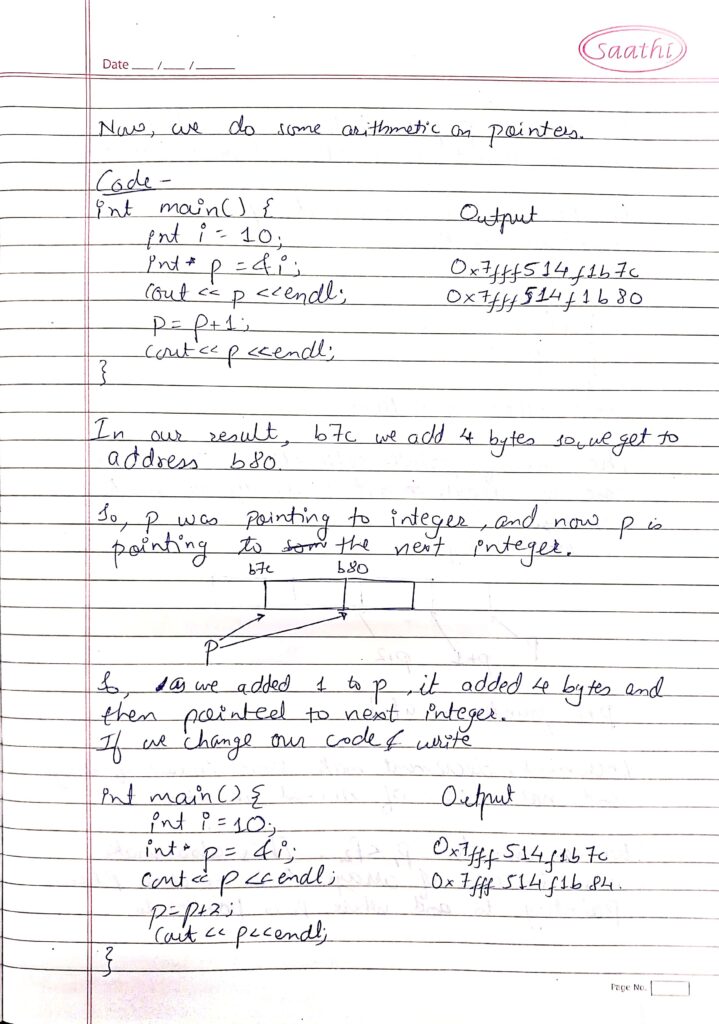 Saathi
Date ___ / ___ / _____
Now, we do some arithmetic on pointers.
Code -
int main() { Output
int i = 10;
int* p = &i; 0x7fff514f1b7c
cout << p <<endl; 0x7fff514f1b80
p = p+1;
cout << p <<endl;
}
In our result, b7c we add 4 bytes so, we get to
address b80.
So, p was pointing to integer, and now p is
pointing to the next integer.
b7c b80
P
So, as we added 1 to p, it added 4 bytes and
then pointed to next integer.
If we change our code & write
int main() { Output
int i = 10;
int* p = &i; 0x7fff514f1b7c
cout << p <<endl; 0x7fff514f1b84.
p=p+2;
cout << p<<endl;
}
Page No.